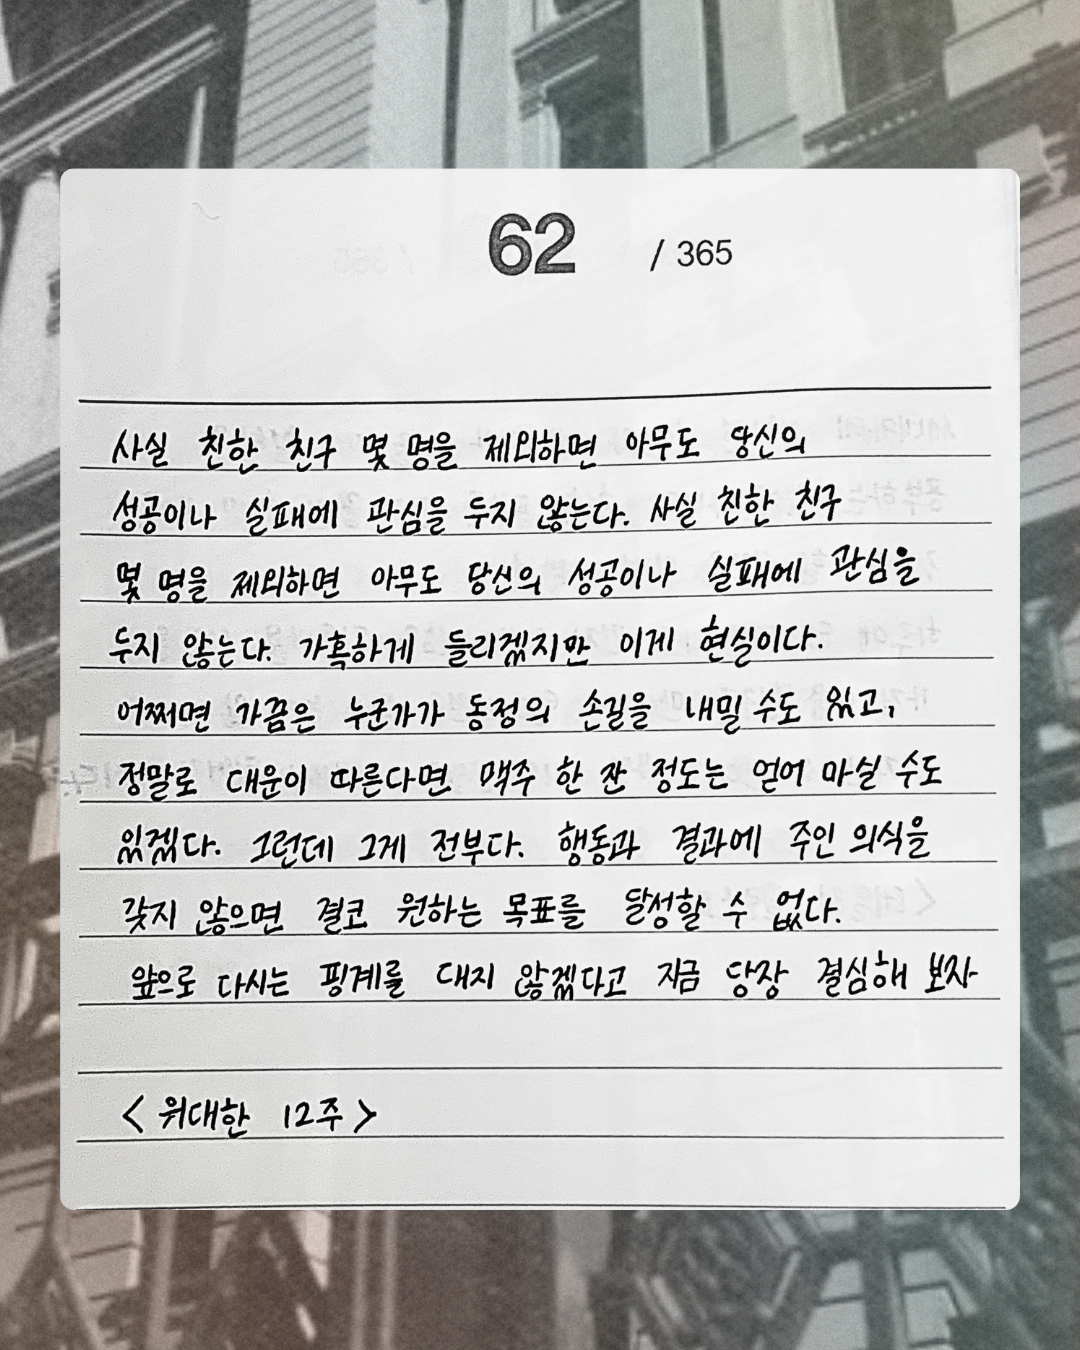 62 / 365
사실 친한 친구 몇 명을 제외하면 아무도 당신의
성공이나 실패에 관심을 두지 않는다. 사실 친한 친구
몇 명을 제외하면 아무도 당신의 성공이나 실패에 관심을
두지 않는다. 가혹하게 들리겠지만 이게 현실이다.
어쩌면 가끔은 누군가가 동정의 손길을 내밀 수도 있고,
정말로 대운이 따른다면 맥주 한 잔 정도는 얻어 마실 수도
있겠다. 그런데 그게 전부다. 행동과 결과에 주인 의식을
갖지 않으면 결코 원하는 목표를 달성할 수 없다.
앞으로 다시는 핑계를 대지 않겠다고 지금 당장 결심해 보자
< 위대한 12주 >